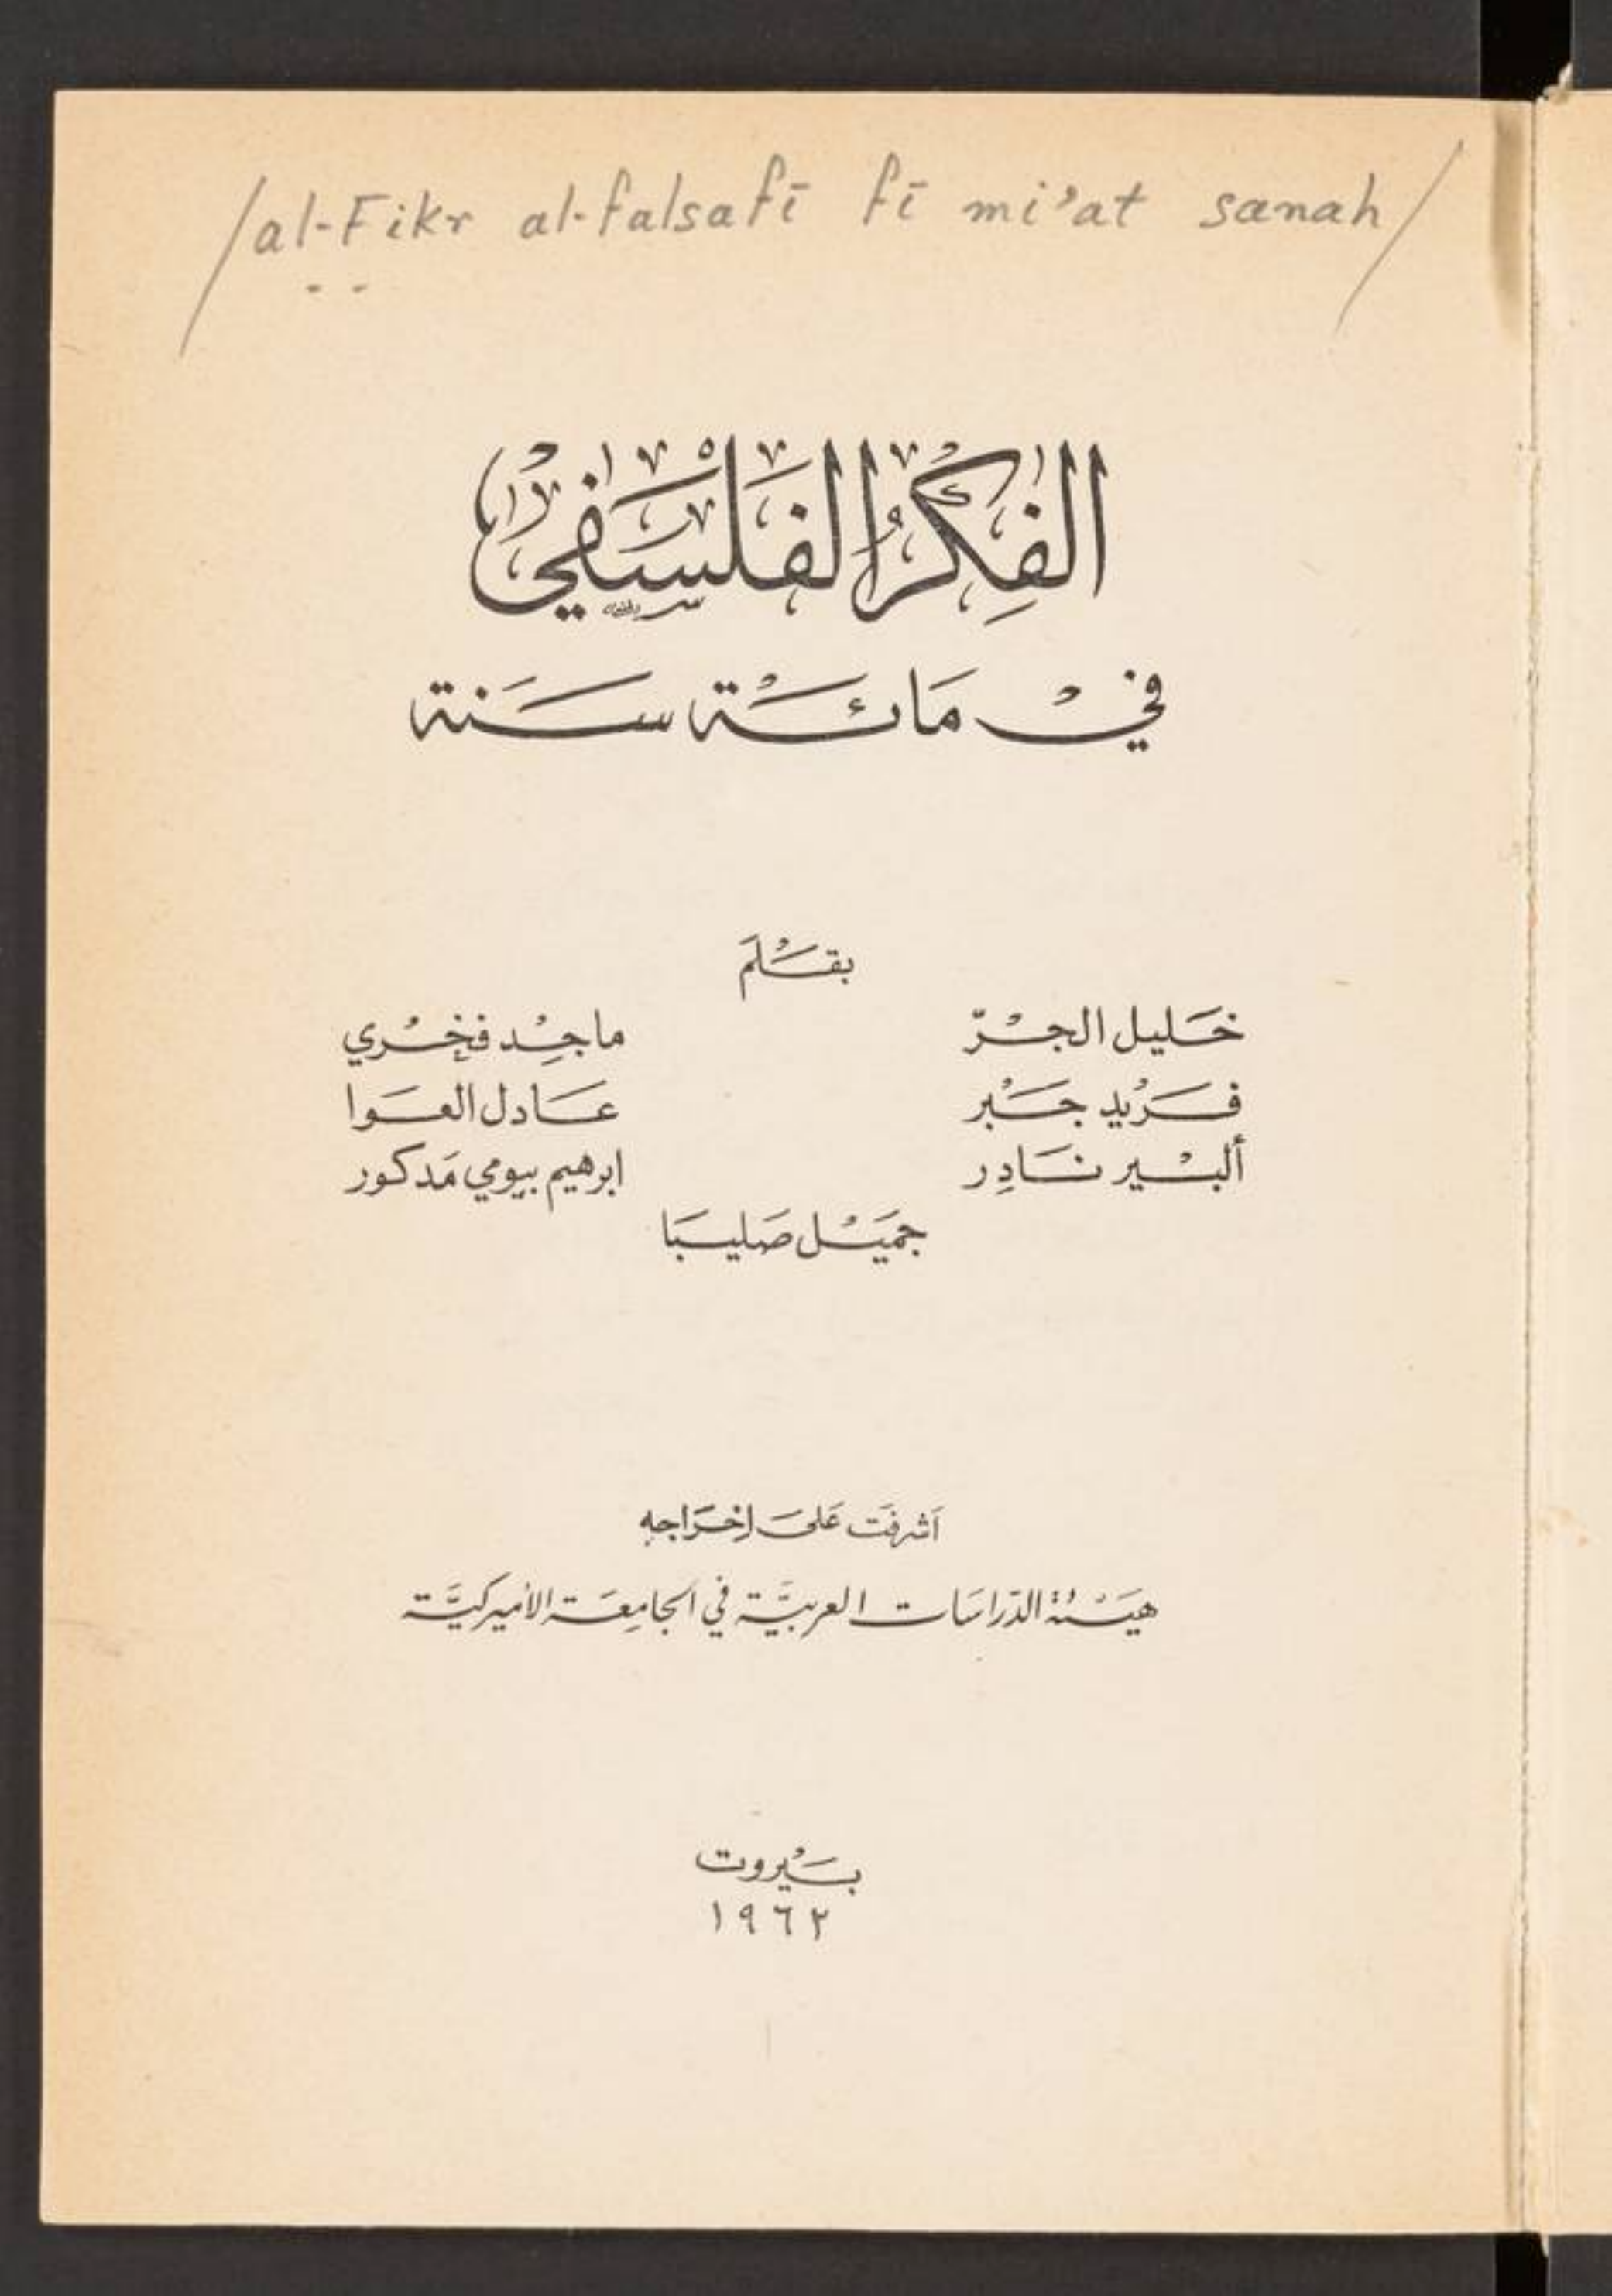 /al-Fikr al-falsafī fī mi'at sanah/
الفِكْرُ الفَلْسَفِيّ
فيْ مَائَة سَنَة
بقَلَم
خَليل الجرّ ماجِد فخْري
فَرَيْد جَبْر عَادل العَوا
ألبْير نَادِر ابرهيم بيومي مَدكور
جَميْل صَليبَا
اَشرفَت عَلىَ اِخْرَاجِه
هيَئة الدّراسَات العربيَّة في الجامِعَة الأميركيَّة
بَيْروت
١٩٦٢